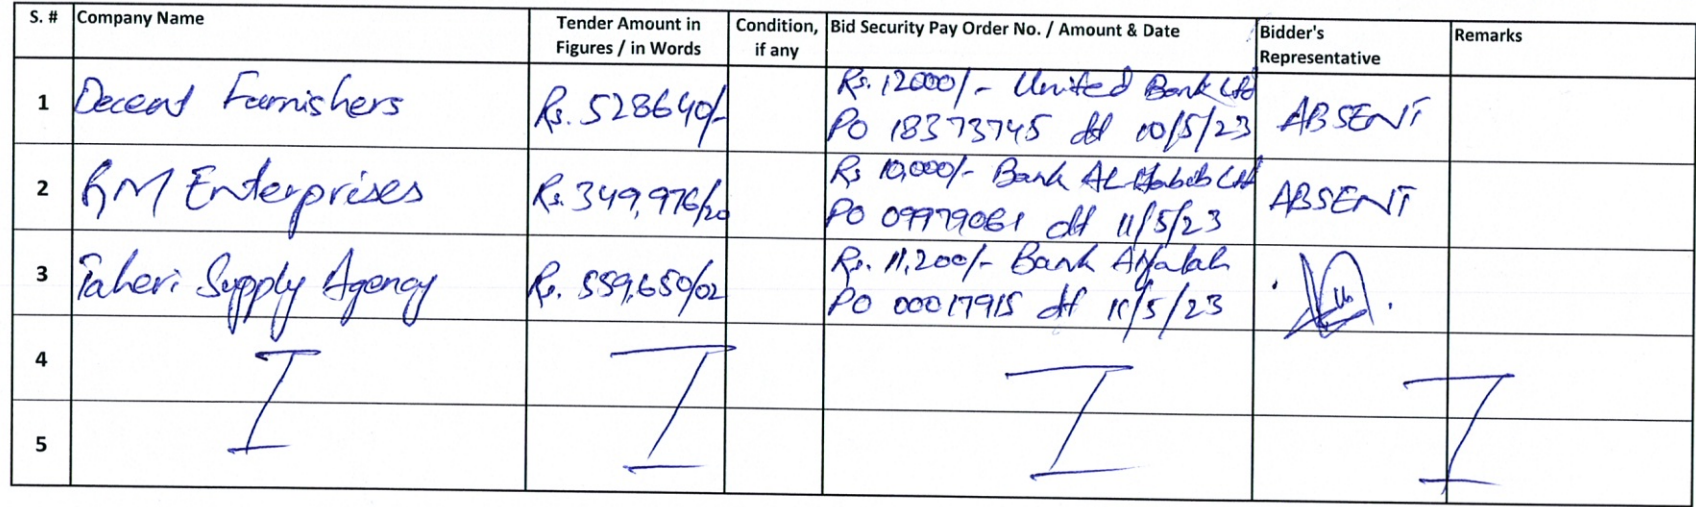 S. # Company Name Tender Amount in Figures / in Words Condition, if any Bid Security Pay Order No. / Amount & Date Bidder's Representative Remarks
1 Decent Furnishers Rs. 528640/- Rs. 12000/- United Bank Ltd
PO 18373745 dt 10/5/23 ABSENT
2 RM Enterprises Rs. 349,976/20 Rs 10,000/- Bank AL Habib Ltd
PO 09979061 dt 11/5/23 ABSENT
3 Taheri Supply Agency Rs. 559,650/02 Rs. 11,200/- Bank Alfalah
PO 00017915 dt 11/5/23
4
5